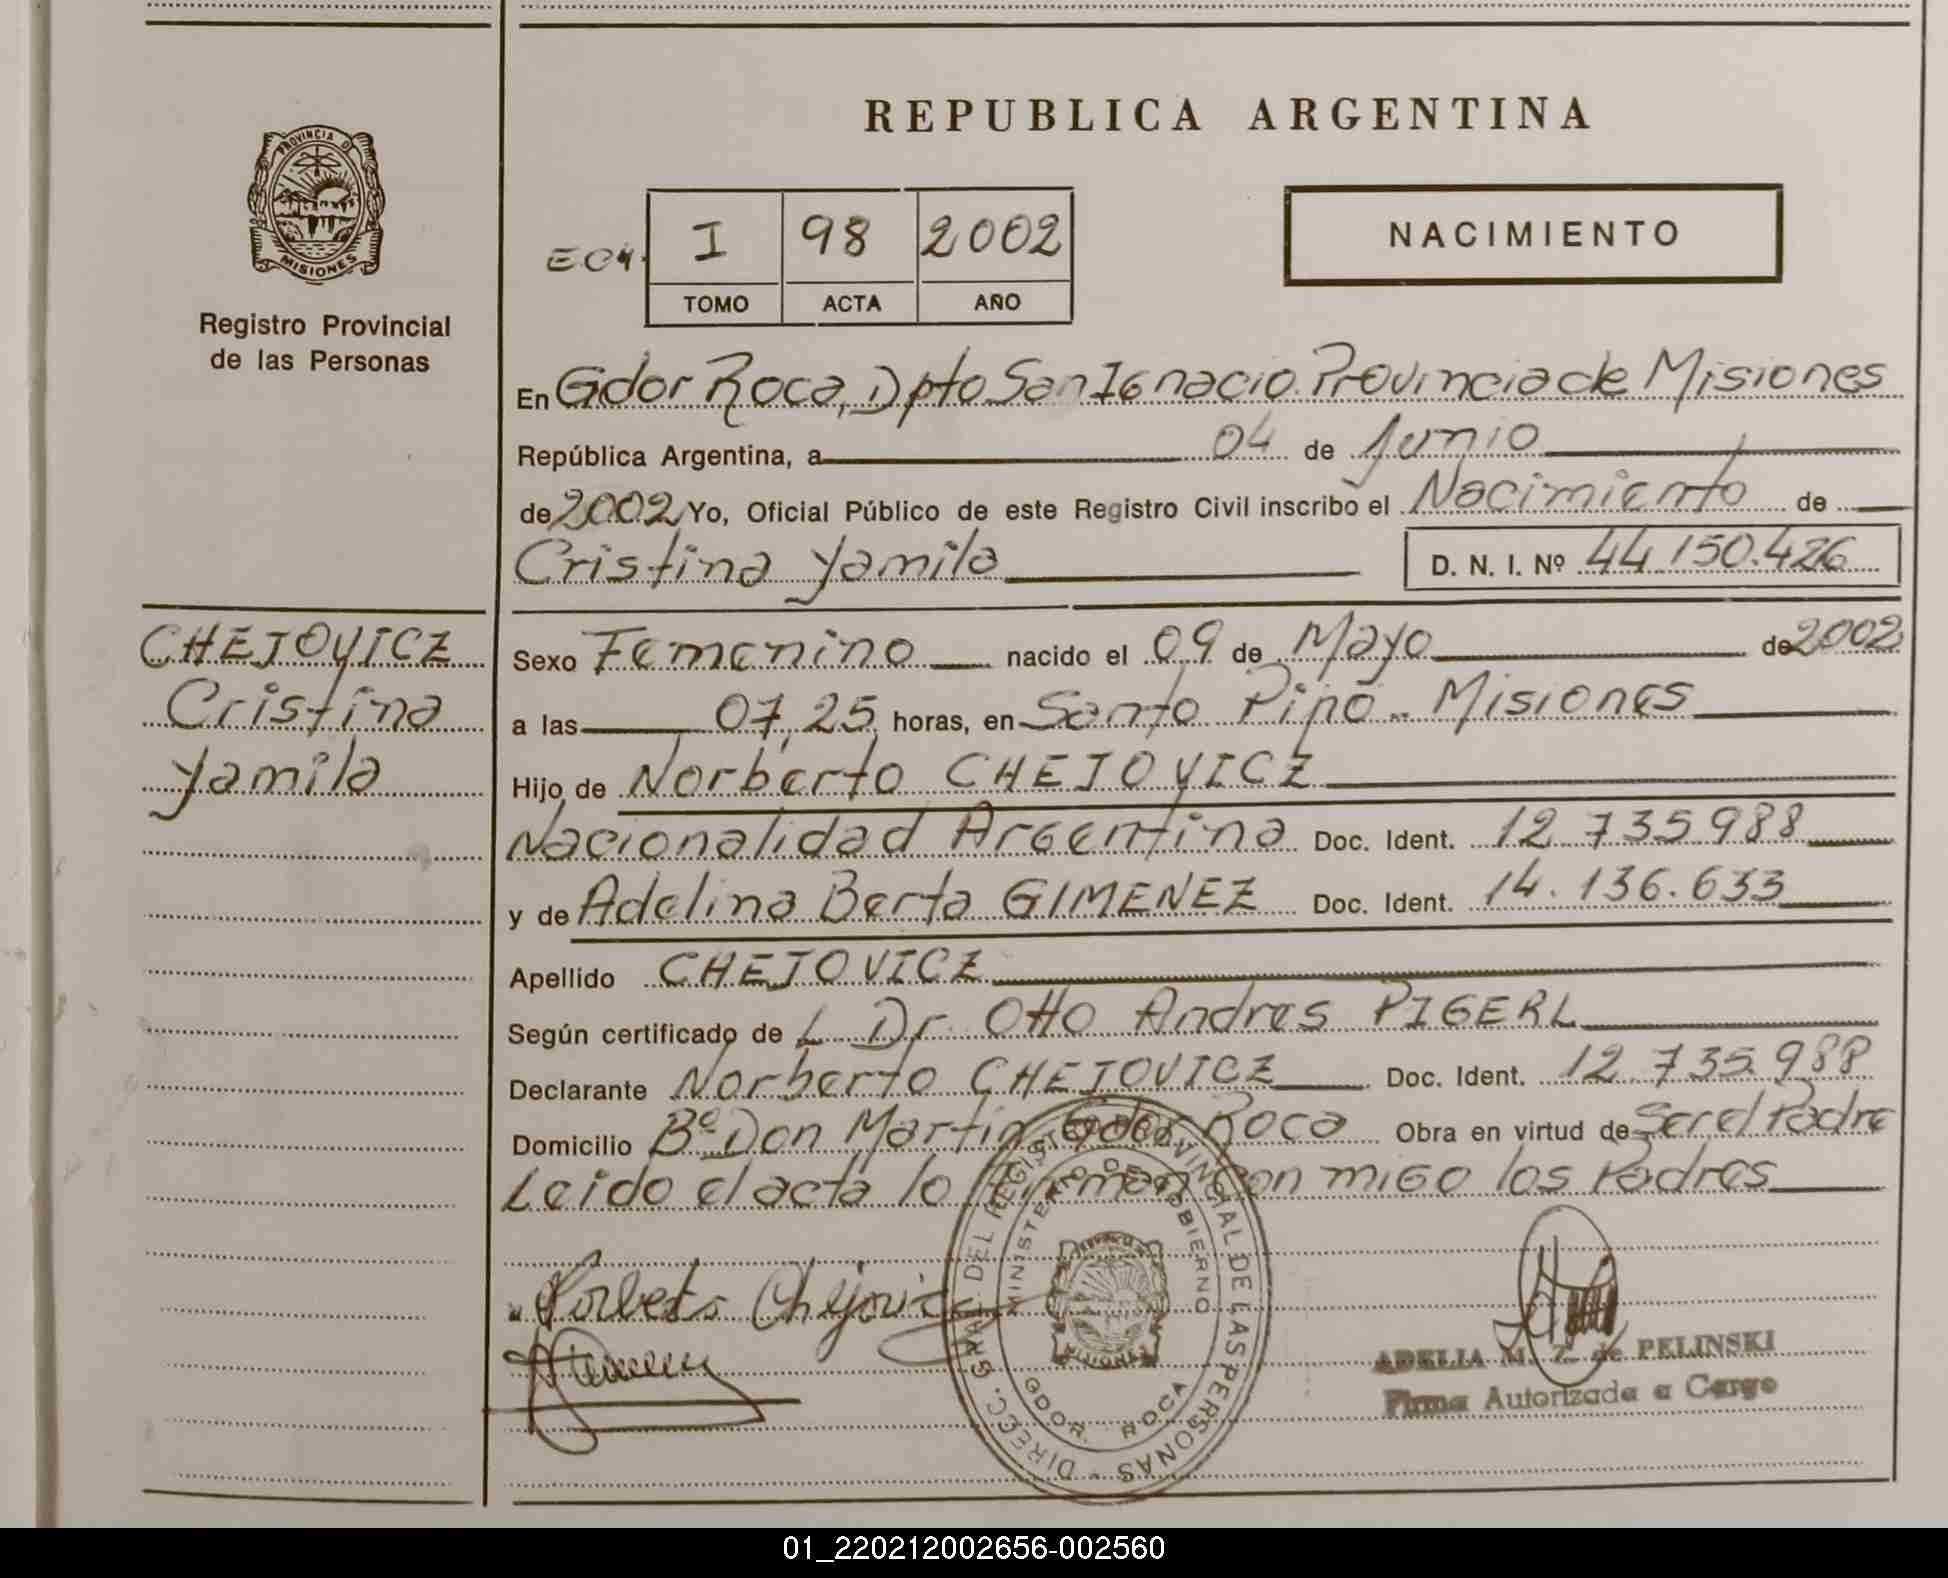 REPUBLICA ARGENTINA
PROVINCIA DE
MISIONES
Registro Provincial
de las Personas
I 98 2002
TOMO ACTA AÑO
NACIMIENTO
En Gdor Roca, Dpto San Ignacio Provincia de Misiones
República Argentina, a 04 de Junio
de 2002 Yo, Oficial Público de este Registro Civil inscribo el Nacimiento de
Cristina Yamila D. N. I. Nº 44.150.426
CHEJOVICZ
Cristina
Yamila
Sexo Femenino nacido el 09 de Mayo de 2002
a las 07,25 horas, en Santo Pipo - Misiones
Hijo de Norberto CHEJOVICZ
Nacionalidad Argentina Doc. Ident. 12.735.988
y de Adelina Berta GIMENEZ Doc. Ident. 14.136.633
Apellido CHEJOVICZ
Según certificado de L Dr. Otto Andres PIGERL
Declarante Norberto CHEJOVICZ Doc. Ident. 12.735.988
Domicilio Bº Don Martin Gdor Roca Obra en virtud de Ser el Padre
Leido el acta lo firman con migo los Padres
Norberto Chejovicz
DIRECC. GRAL. DEL REGISTRO PROVINCIAL DE LAS PERSONAS
MINISTERIO DE GOBIERNO
MISIONES
GDOR. ROCA
ADELIA M. Z. de PELINSKI
Firma Autorizada a Cargo
01_220212002656-002560